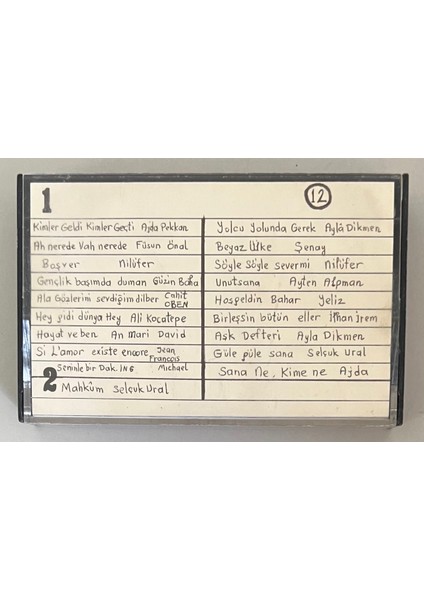 1
12
Kimler Geldi Kimler Geçti Ajda Pekkan
Ah nerede Vah nerede Füsun Önal
Boşver Nilüfer
Gençlik başımda duman Güzin Baha
Ala Gözlerimi sevdiğim dilber Cahit OBEN
Hey gidi dünya Hey Ali Kocatepe
Hayat ve ben An Mari David
Si L'amor existe encore Jean François Michael
2 Seninle bir Dak. ING
Mahkûm Selçuk Ural
Yolcu Yolunda Gerek Ayla Dikmen
Beyaz Ülke Şenay
Söyle Söyle severmi Nilüfer
Unutsana Ayten Alpman
Hoşgeldin Bahar Yeliz
Birleşsin bütün eller İlhan İrem
Aşk Defteri Ayla Dikmen
Güle güle sana Selçuk Ural
Sana Ne, Kime ne Ajda